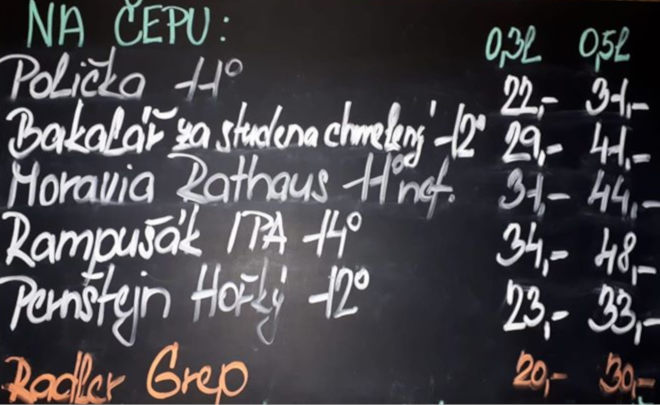 NA ČEPU: 0,3l 0,5l
Polička 11° 22,- 31,-
Bakalář za studena chmelený 12° 29,- 41,-
Moravia Rathaus 11° nef. 31,- 44,-
Rampušák IPA 14° 34,- 48,-
Pernštejn Hořký 12° 23,- 33,-
Radler Grep 20,- 30,-